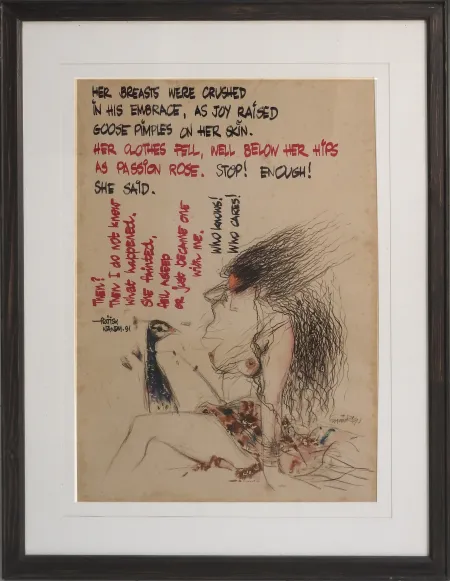 HER BREASTS WERE CRUSHED
IN HIS EMBRACE, AS JOY RAISED
GOOSE PIMPLES ON HER SKIN.
HER CLOTHES FELL, WELL BELOW HER HIPS
AS PASSION ROSE. STOP! ENOUGH!
SHE SAID.
THEN?
THEN I DO NOT KNOW
WHAT HAPPENED.
SHE FAINTED,
FELL ASLEEP
OR JUST BECAME ONE
WITH ME.
WHO KNOWS!
WHO CARES!
PRITISH
NANDY. 91